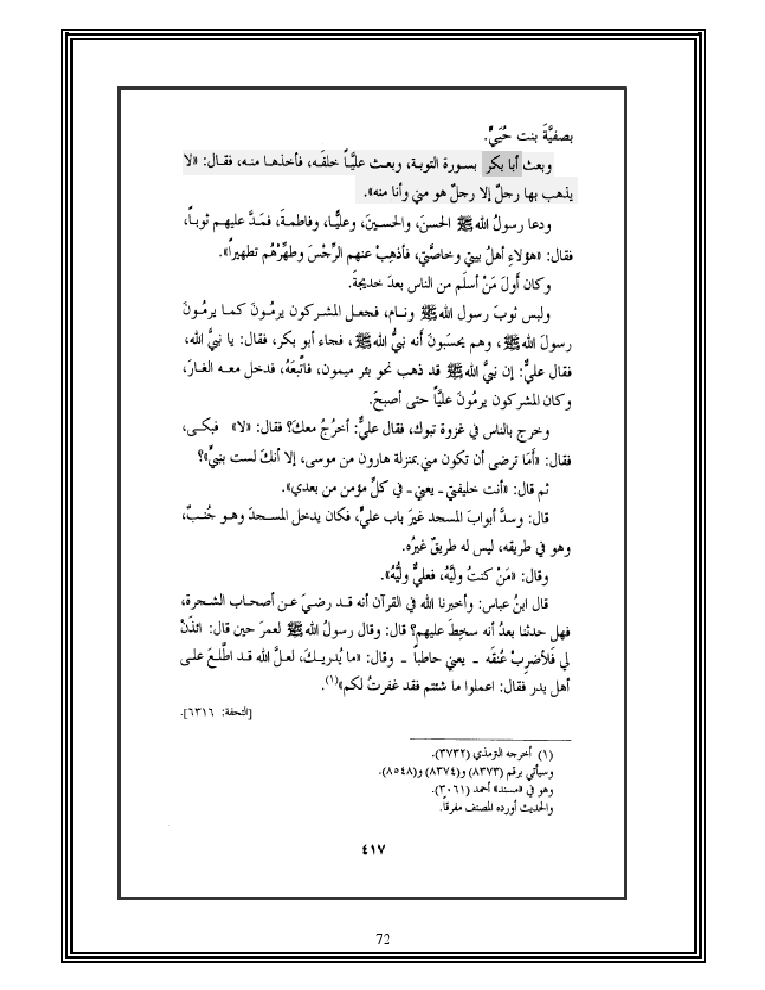 بصفيَّةَ بنت حُيَيٍّ.
وبعث أبا بكر بسورة التوبة، وبعث عليَّاً خلفَه، فأخذها منه، فقال: «لا
يذهب بها رجلٌ إلا رجلٌ هو مني وأنا منه».
ودعا رسولُ الله ﷺ الحسنَ، والحسينَ، وعليًّا، وفاطمةَ، فمَدَّ عليهم ثوباً،
فقال: «هؤلاءِ أهلُ بيتي وخاصَّتي، فأذهِبْ عنهم الرِّجْسَ وطهِّرْهُم تطهيراً».
وكان أولَ مَنْ أسلَم من الناس بعدَ خديجةَ.
ولبس ثوبَ رسول الله ﷺ ونام، فجعل المشركون يرمُونَ كما يرمُونَ
رسولَ الله ﷺ، وهم يحسَبونَ أنه نبيُّ الله ﷺ، فجاء أبو بكر، فقال: يا نبيَّ الله،
فقال عليٌّ: إن نبيَّ الله ﷺ قد ذهب نحو بئر ميمون، فاتَّبعَهُ، فدخل معه الغارَ،
وكان المشركون يرمُونَ عليَّاً حتى أصبحَ.
وخرج بالناس في غزوة تبوك، فقال عليٌّ: أخرُجُ معكَ؟ فقال: «لا» فبكى،
فقال: «أَمَا ترضى أن تكون مني بمنزلة هارون من موسى، إلا أنكَ لست بنبيٍّ»؟
ثم قال: «أنت خليفتي ـ يعني ـ في كلِّ مؤمن من بعدي».
قال: وسدَّ أبوابَ المسجد غيرَ باب عليٍّ، فكان يدخل المسجدَ وهو جُنبٌ،
وهو في طريقه، ليس له طريقٌ غيرُه.
وقال: «مَنْ كنتُ وليَّهُ، فعليٌّ وليُّهُ».
قال ابنُ عباس: وأخبرنا الله في القرآن أنه قد رضيَ عن أصحاب الشجرة،
فهل حدثنا بعدُ أنه سخِطَ عليهم؟ قال: وقال رسولُ الله ﷺ لعمرَ حين قال: «ائذَنْ
لي فَلأضرِبْ عُنقَه ـ يعني حاطباً ـ وقال: «ما يُدريكَ، لعلَّ الله قد اطَّلعَ على
أهل بدر فقال: اعملوا ما شئتم فقد غفرتُ لكم»(١).
[التحفة: ٦٣١٦].
(١) أخرجه الترمذي (٣٧٣٢).
وسيأتي برقم (٨٣٧٣) و(٨٣٧٤) و(٨٥٤٨).
وهو في «مسند» أحمد (٣٠٦١).
والحديث أورده المصنف مفرقاً.
٤١٧
72